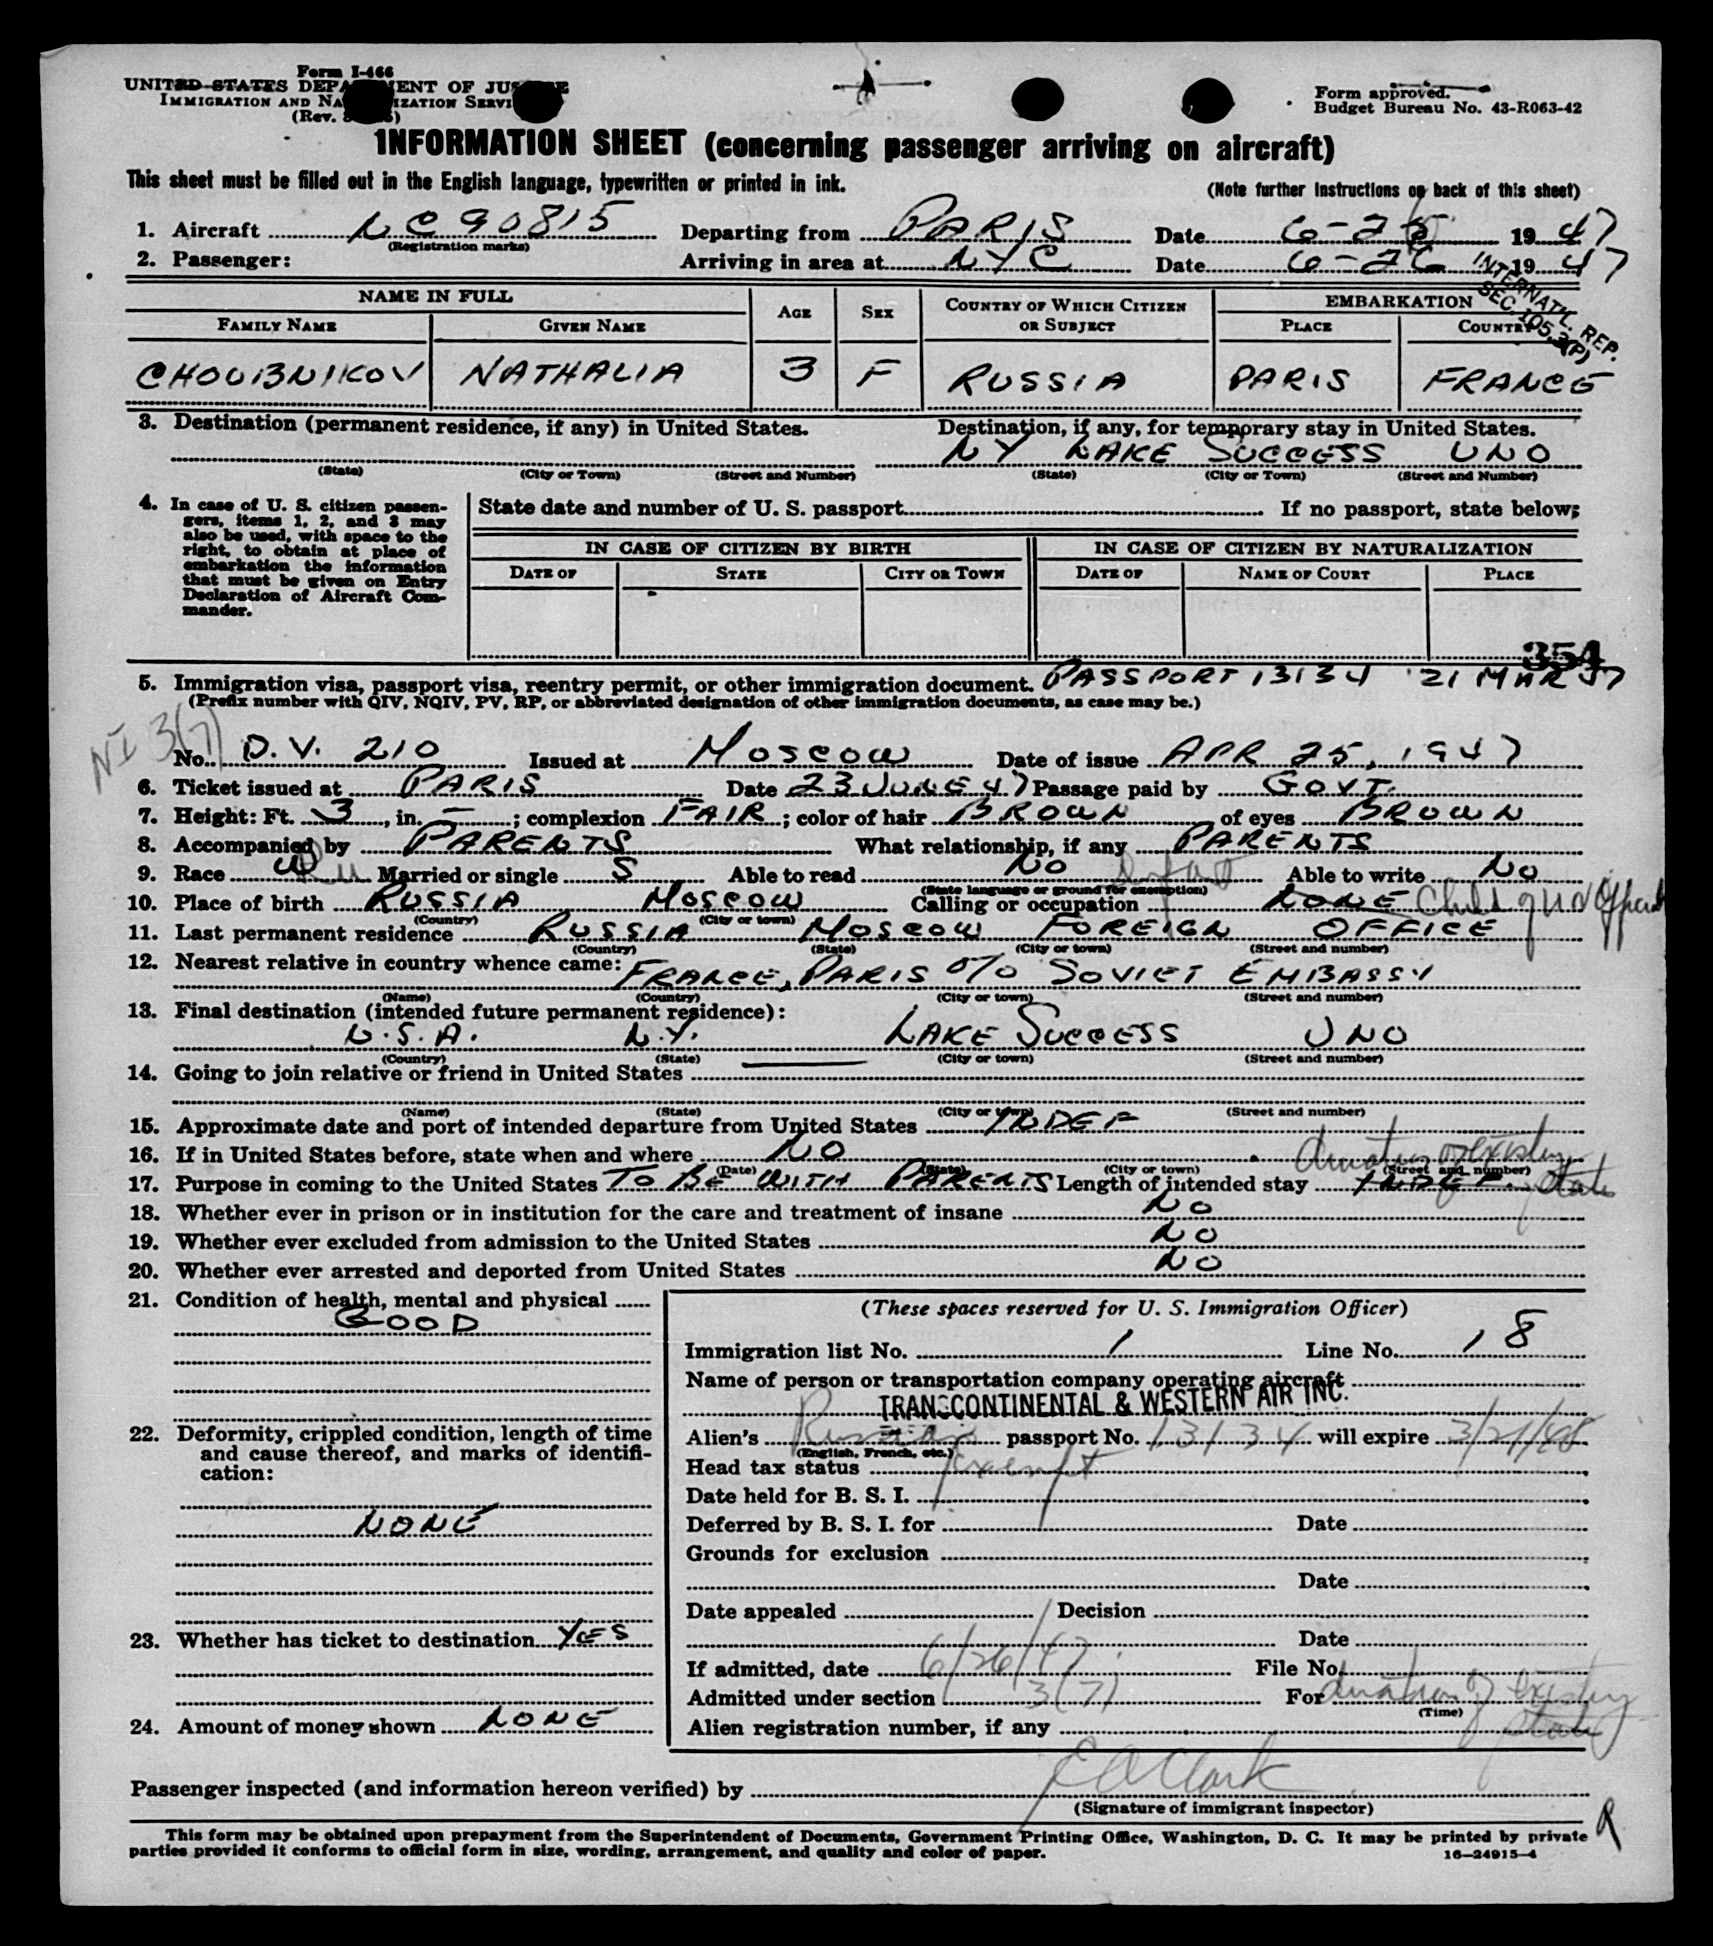 Form I-466
UNITED STATES DEPARTMENT OF JUSTICE
IMMIGRATION AND NATURALIZATION SERVICE
(Rev.
Form approved.
Budget Bureau No. 43-R063-42
INFORMATION SHEET (concerning passenger arriving on aircraft)
This sheet must be filled out in the English language, typewritten or printed in ink. (Note further instructions on back of this sheet)
1. Aircraft NC 90815 Departing from PARIS Date 6-25 1947
(Registration marks)
2. Passenger: Arriving in area at NYC Date 6-26 1947
INTERNAT'L. REP.
SEC. 105.3(P)
NAME IN FULL AGE SEX COUNTRY OF WHICH CITIZEN OR SUBJECT EMBARKATION
FAMILY NAME GIVEN NAME PLACE COUNTRY
CHOUBNIKOV NATHALIA 3 F RUSSIA PARIS FRANCE
3. Destination (permanent residence, if any) in United States. Destination, if any, for temporary stay in United States.
NY LAKE SUCCESS UNO
(State) (City or Town) (Street and Number) (State) (City or Town) (Street and Number)
4. In case of U. S. citizen passengers, items 1, 2, and 3 may also be used, with space to the right, to obtain at place of embarkation the information that must be given on Entry Declaration of Aircraft Commander.
State date and number of U. S. passport If no passport, state below:
IN CASE OF CITIZEN BY BIRTH IN CASE OF CITIZEN BY NATURALIZATION
DATE OF STATE CITY OR TOWN DATE OF NAME OF COURT PLACE
354
5. Immigration visa, passport visa, reentry permit, or other immigration document. PASSPORT 13134 21 MAR 47
(Prefix number with QIV, NQIV, PV, RP, or abbreviated designation of other immigration documents, as case may be.)
NI 3(7)
No. D.V. 210 Issued at MOSCOW Date of issue APR 25, 1947
6. Ticket issued at PARIS Date 23 JUNE 47 Passage paid by GOVT.
7. Height: Ft. 3, in. —; complexion FAIR; color of hair BROWN of eyes BROWN
8. Accompanied by PARENTS What relationship, if any PARENTS
9. Race W Ru Married or single S Able to read NO Infant Able to write NO
(State language or ground for exemption)
10. Place of birth RUSSIA MOSCOW Calling or occupation NONE Child of UN Official
(Country) (City or town)
11. Last permanent residence RUSSIA MOSCOW FOREIGN OFFICE
(Country) (State) (City or town) (Street and number)
12. Nearest relative in country whence came: FRANCE, PARIS c/o SOVIET EMBASSY
(Name) (Country) (City or town) (Street and number)
13. Final destination (intended future permanent residence):
U.S.A. N.Y. LAKE SUCCESS UNO
(Country) (State) (City or town) (Street and number)
14. Going to join relative or friend in United States
(Name) (State) (City or town) (Street and number)
15. Approximate date and port of intended departure from United States INDEF
16. If in United States before, state when and where NO
(Date) (State) (City or town) (Street and number)
duration of existing status
17. Purpose in coming to the United States TO BE WITH PARENTS Length of intended stay INDEF.
18. Whether ever in prison or in institution for the care and treatment of insane NO
19. Whether ever excluded from admission to the United States NO
20. Whether ever arrested and deported from United States NO
21. Condition of health, mental and physical
GOOD
22. Deformity, crippled condition, length of time and cause thereof, and marks of identification:
NONE
23. Whether has ticket to destination YES
24. Amount of money shown NONE
(These spaces reserved for U. S. Immigration Officer)
Immigration list No. 1 Line No. 18
Name of person or transportation company operating aircraft
TRANSCONTINENTAL & WESTERN AIR INC.
Alien's Russian passport No. 13134 will expire 3/21/48
(English, French, etc.)
Head tax status exempt
Date held for B. S. I.
Deferred by B. S. I. for Date
Grounds for exclusion
Date
Date appealed Decision
Date
If admitted, date 6/26/47 File No.
Admitted under section 3(7) For duration of existing status
(Time)
Alien registration number, if any
Passenger inspected (and information hereon verified) by E A Clark
(Signature of immigrant inspector)
R
This form may be obtained upon prepayment from the Superintendent of Documents, Government Printing Office, Washington, D. C. It may be printed by private
parties provided it conforms to official form in size, wording, arrangement, and quality and color of paper.
16—24915-4